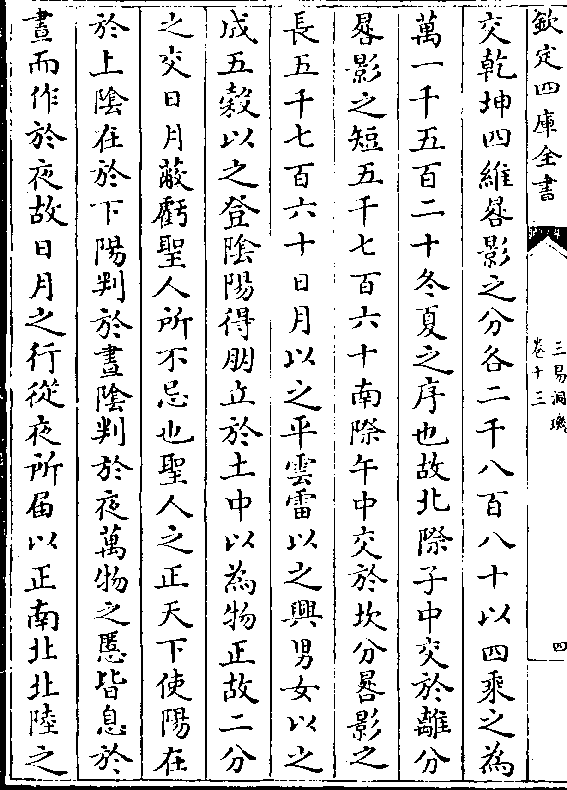 欽定四庫全書
三易洞璣
卷十三
四
交乾坤四維晷影之分各二千八百八十以四乘之為
萬一千五百二十冬夏之序也故北際子中交於離分
晷影之短五千七百六十南際午中交於坎分晷影之
長五千七百六十日月以之平雲雷以之興男女以之
成五穀以之登陰陽得朋立於土中以為物正故二分
之交日月蔽虧聖人所不忌也聖人之正天下使陽在
於上陰在於下陽判於晝陰判於夜萬物之慝皆息於
晝而作於夜故日月之行從夜所届以正南北北陸之